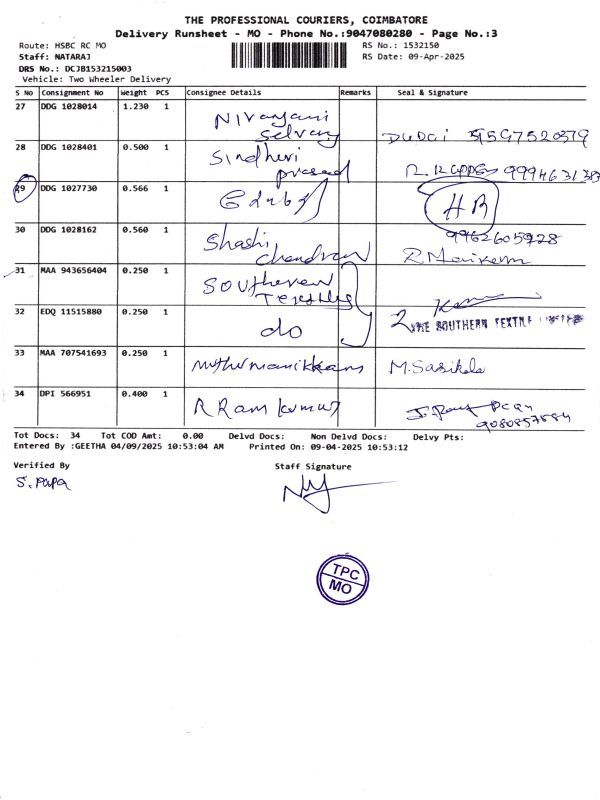 THE PROFESSIONAL COURIERS, COIMBATORE
Delivery Runsheet - MO - Phone No.:9047080280 - Page No.:3
Route: HSBC RC MO
RS No.: 1532150
Staff: NATARAJ
RS Date: 09-Apr-2025
DRS No.: DCJB153215003
Vehicle: Two Wheeler Delivery
S No Consignment No Weight PCS Consignee Details Remarks Seal & Signature
27 DDG 1028014 1.230 1 Niranjani
Selvaraj
28 DDG 1028401 0.500 1 Sindhuri
prasad
29 DDG 1027730 0.566 1 HR
30 DDG 1028162 0.560 1 Shashi 9962605928
Chandran
31 MAA 943656404 0.250 1 Southeren
32 EDQ 11515880 0.250 1 do THE SOUTHERN TEXTILE
33 MAA 707541693 0.250 1 Muthumanikkam M. Sasikala
34 DPI 566951 0.400 1 R Ram kumar
9080857584
Tot Docs: 34 Tot COD Amt: 0.00 Delvd Docs: Non Delvd Docs: Delvy Pts:
Entered By :GEETHA 04/09/2025 10:53:04 AM Printed On: 09-04-2025 10:53:12
Verified By Staff Signature
S. PAPA
TPC
MO